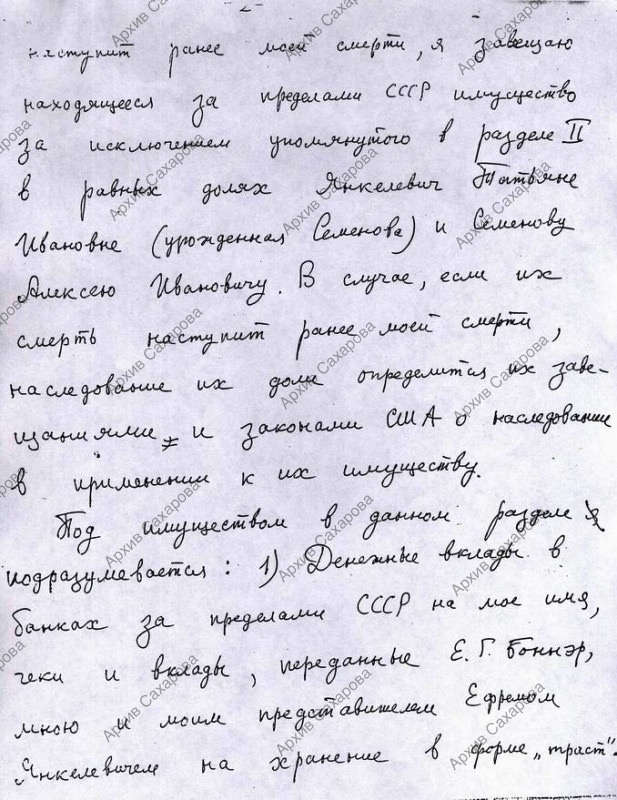 - 2 -
наступит ранее моей смерти, я завещаю
находящееся за пределами СССР имущество
за исключением упомянутого в разделе II
в равных долях Янкелевич Татьяне
Ивановне (урожденная Семенова) и Семенову
Алексею Ивановичу. В случае, если их
смерть наступит ранее моей смерти,
наследование их доли определится их заве-
щаниями и законами США о наследовании
в применении к их имуществу.
Под имуществом в данном разделе
подразумевается: 1) Денежные вклады в
банках за пределами СССР на мое имя,
чеки и вклады, переданные Е. Г. Боннэр,
мною и моим представителем Ефремом
Янкелевичем на хранение в форме „траст".
Архив Сахарова